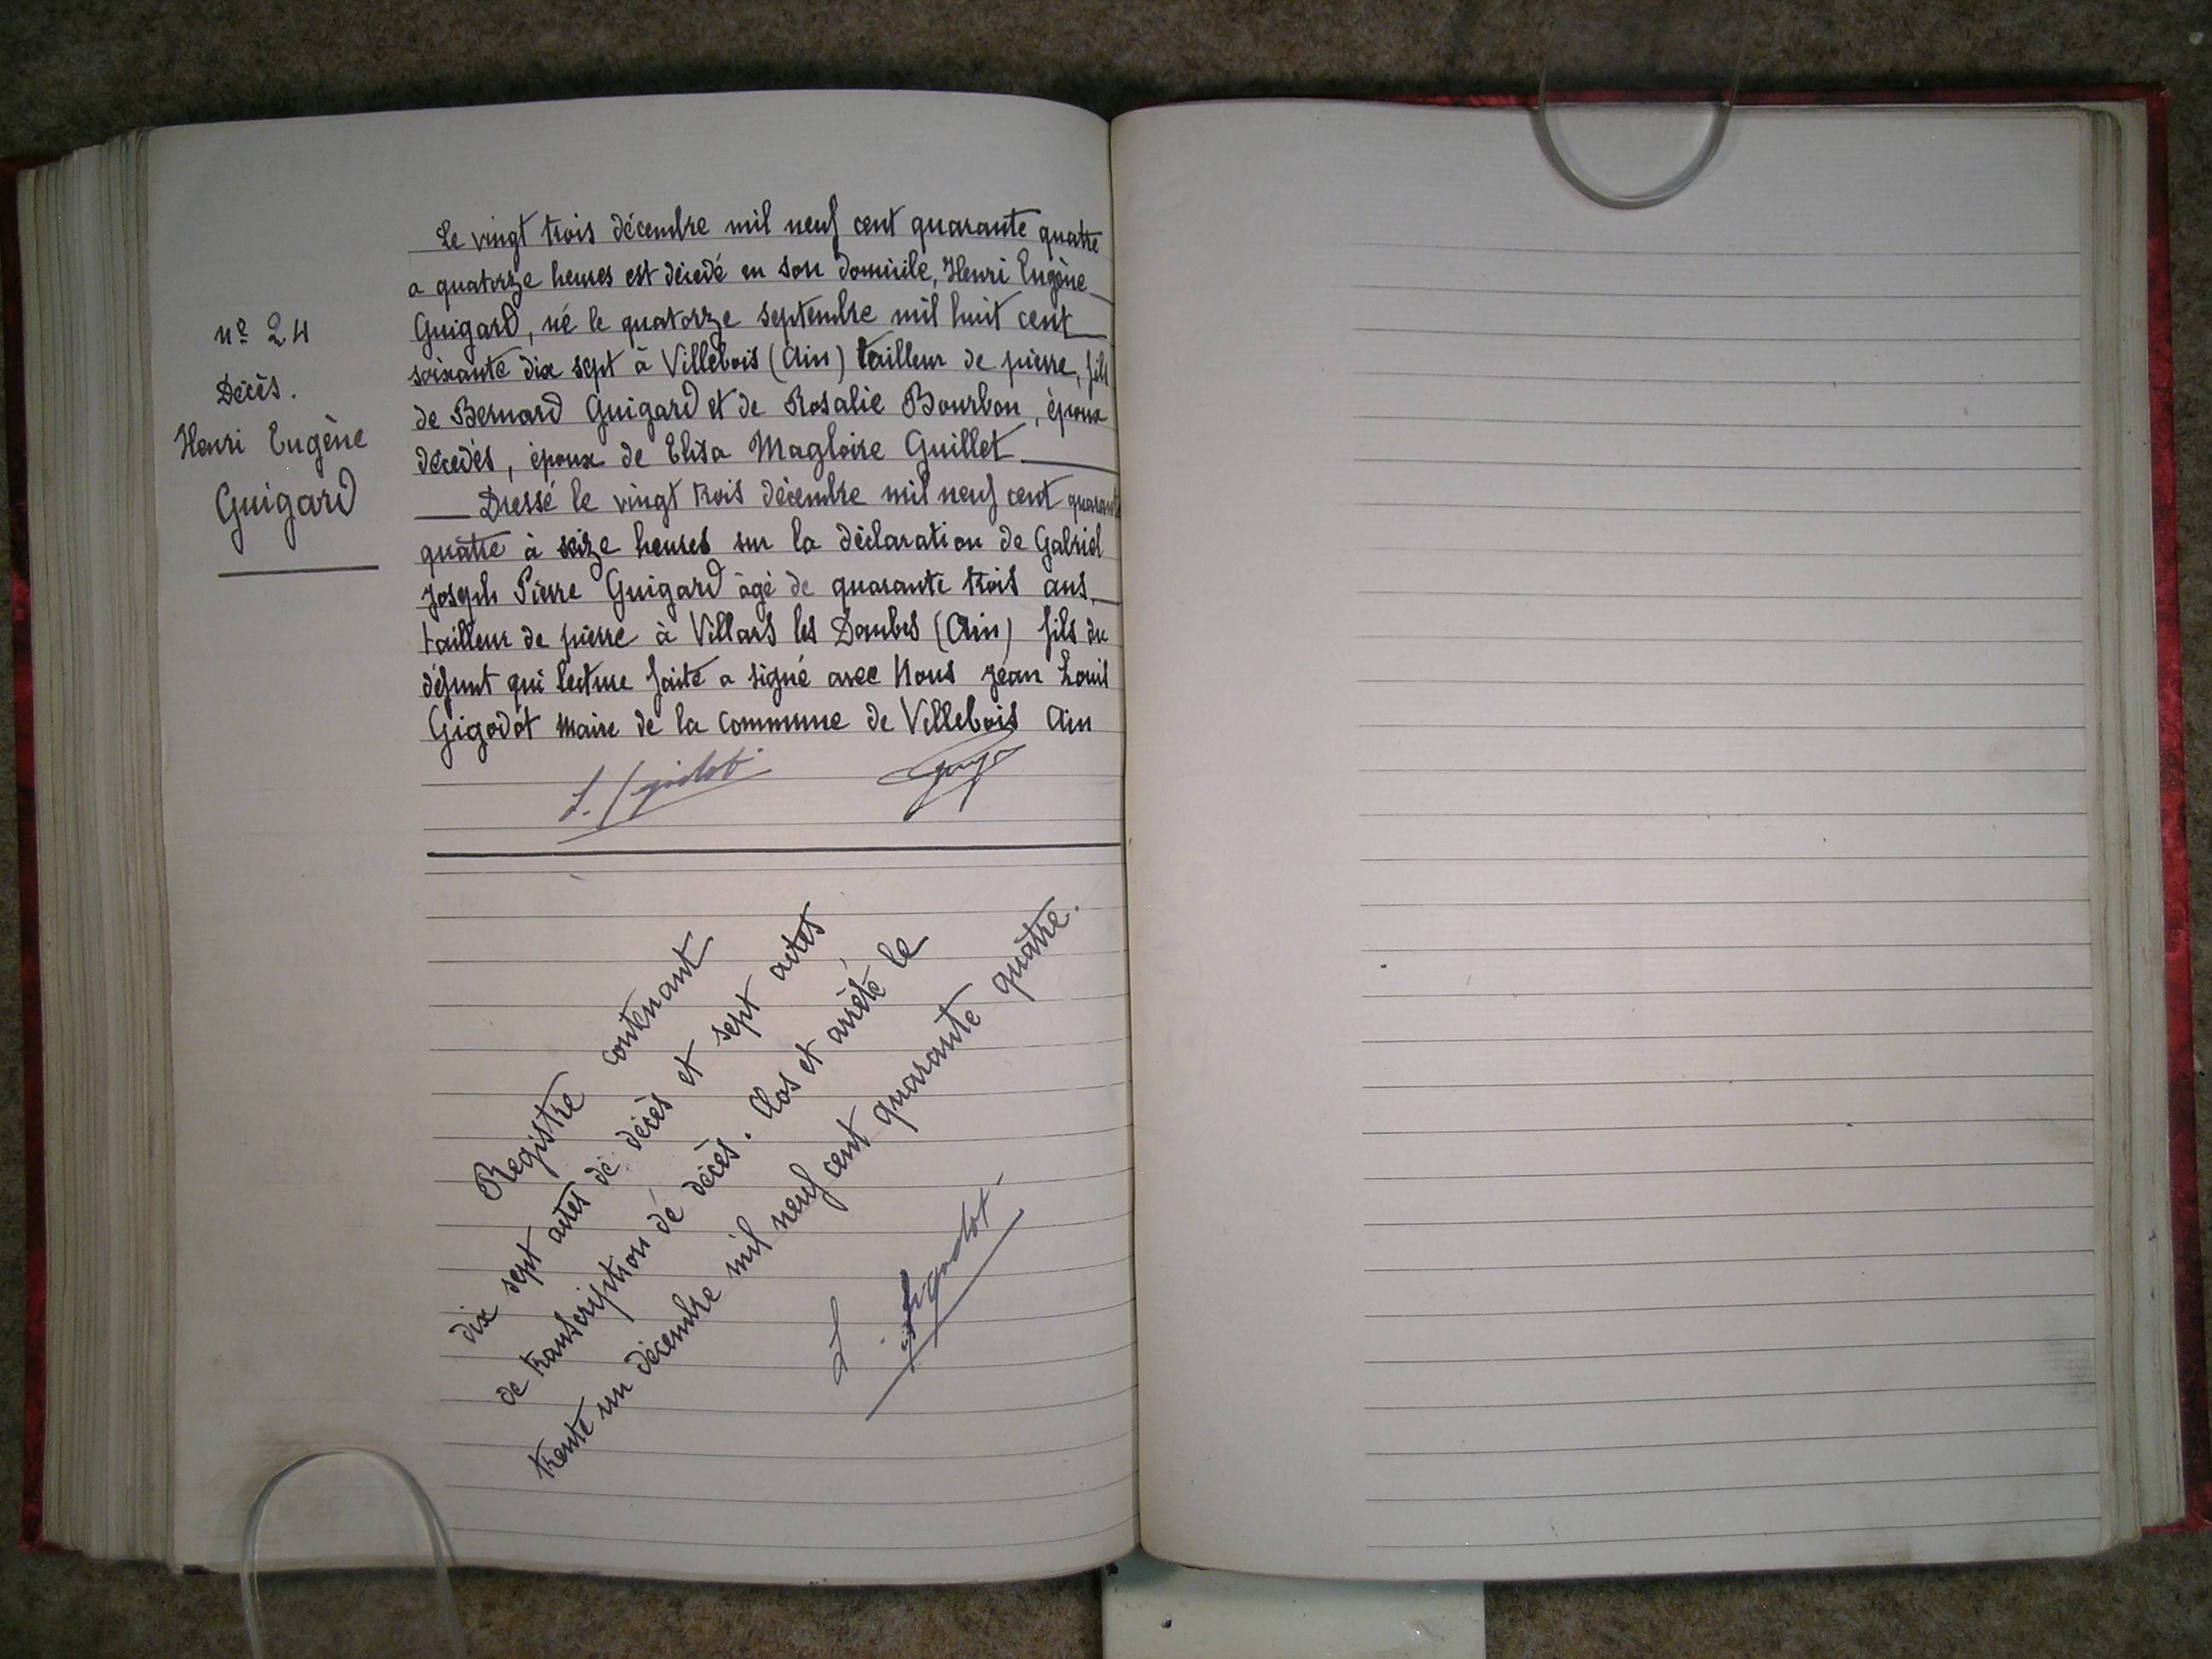 nº 24
Décès.
Henri Eugène
Guigard
Le vingt trois décembre mil neuf cent quarante quatre
a quatorze heures est décedé en son domicile, Henri Eugène
Guigard, né le quatorze septembre mil huit cent
soixante dix sept à Villebois (Ain) tailleur de pierre, fils
de Bernard Guigard et de Rosalie Bourbon, époux
décedés, époux de Elisa Magloire Guillet
Dressé le vingt trois décembre mil neuf cent quarante
quatre à seize heures sur la déclaration de Gabriel
Joseph Pierre Guigard âgé de quarante trois ans,
tailleur de pierre à Villars les Dombes (Ain) fils du
défunt qui lecture faite a signé avec Nous Jean Louis
Gigodot Maire de la Commune de Villebois Ain
L. Gigodot
Registre contenant
dix sept actes de décès et sept actes
de transcription de décès. Clos et arrêté le
trente un décembre mil neuf cent quarante quatre.
L. Gigodot